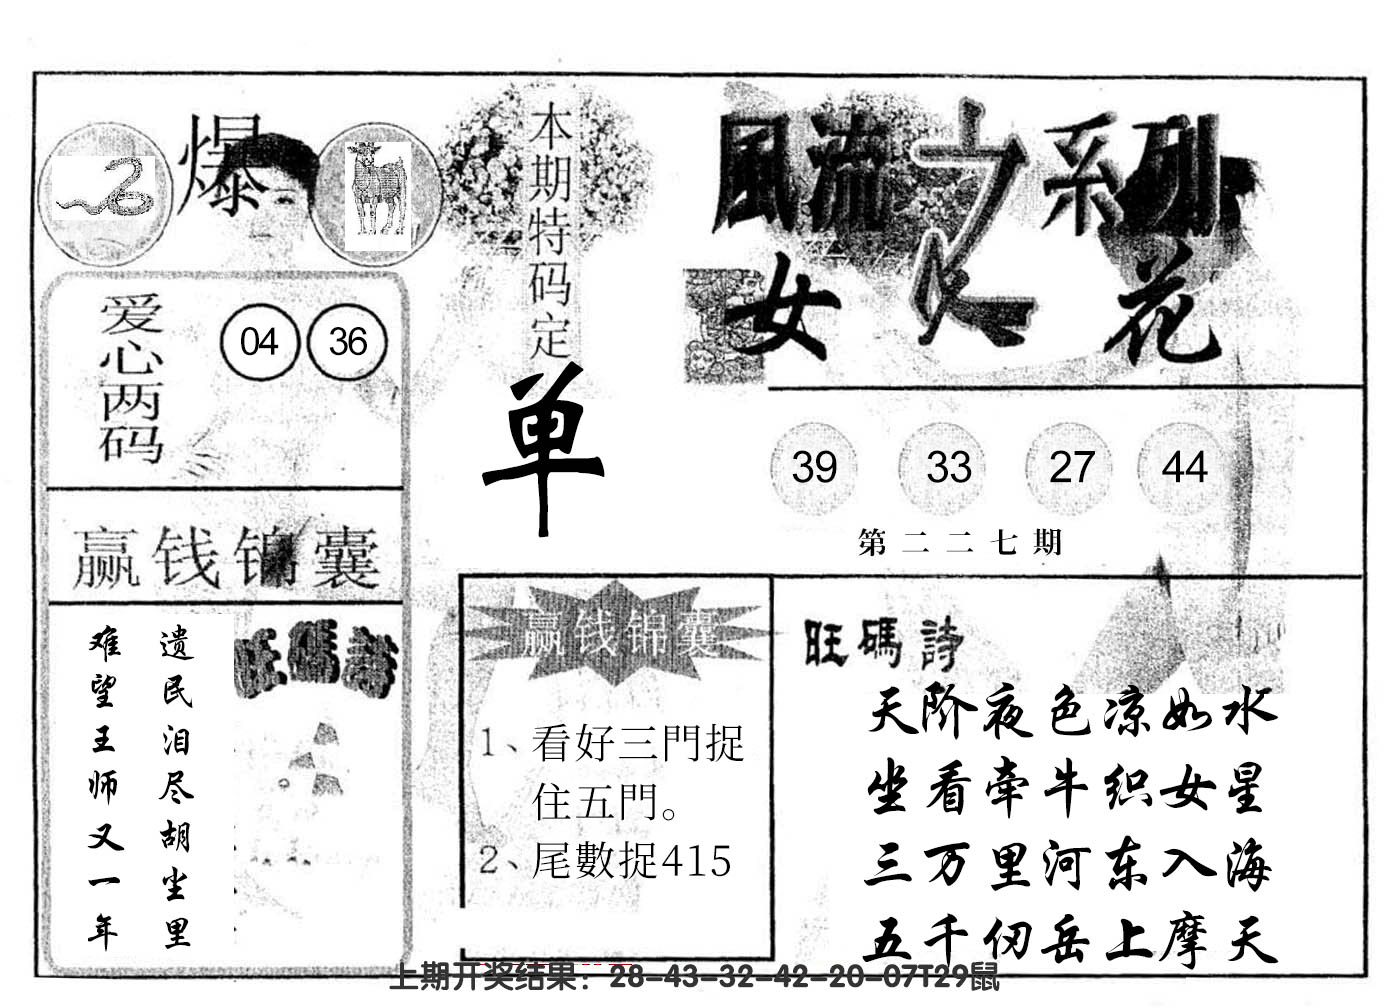 爆
本期特码定
单
風流之系列
女人花
爱心两码
04 36
39 33 27 44
第二二七期
赢钱锦囊
遗民泪尽胡尘里
难望王师又一年
旺碼詩
赢钱锦囊
1、看好三門捉
住五門。
2、尾數捉415
旺碼詩
天阶夜色凉如水
坐看牵牛织女星
三万里河东入海
五千仞岳上摩天
上期开奖结果：28-43-32-42-20-07T29鼠